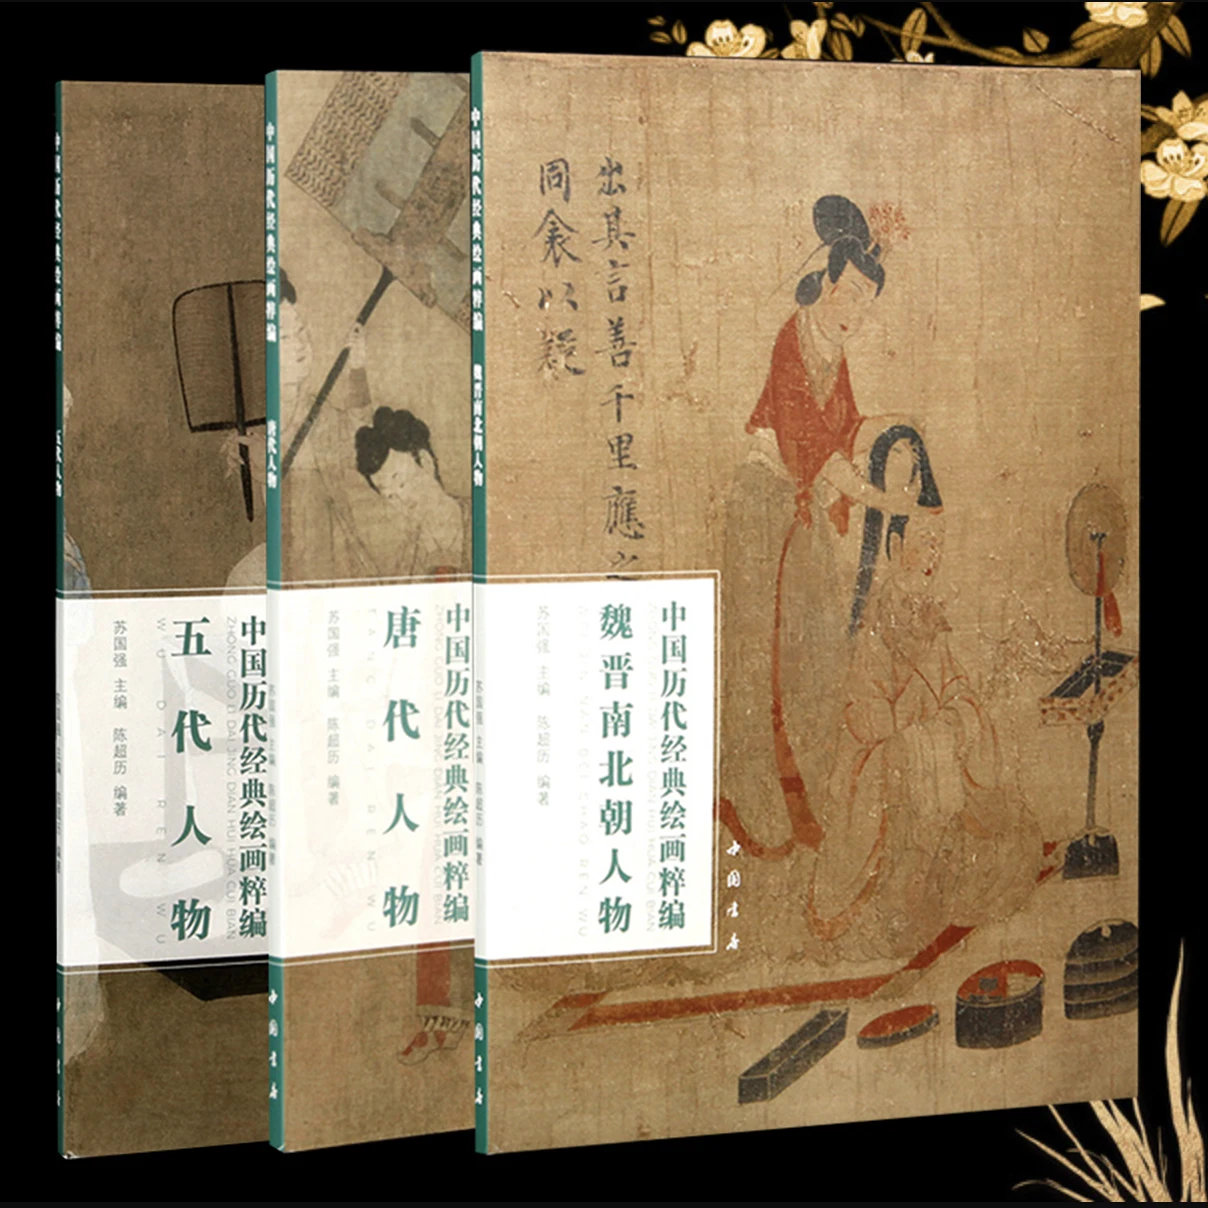 中国历代经典绘画粹编
五代人物
中国历代经典绘画粹编
ZHONG GUO LI DAI JING DIAN HUI HUA CUI BIAN
五代人物
WU DAI REN WU
苏国强 主编 陈超历 编著
苏国强 主编 陈超历 编著
中国书店
中国历代经典绘画粹编
唐代人物
中国历代经典绘画粹编
唐代人物
TANG DAI REN WU
苏国强 主编 陈超历 编著
苏国强 主编 陈超历 编著
中国书店
中国历代经典绘画粹编
魏晋南北朝人物
出其言善千里應之
同衾以疑
中国历代经典绘画粹编
ZHONG GUO LI DAI JING DIAN HUI HUA CUI BIAN
魏晋南北朝人物
苏国强 主编 陈超历 编著
苏国强 主编 陈超历 编著
中国书店
中国书店